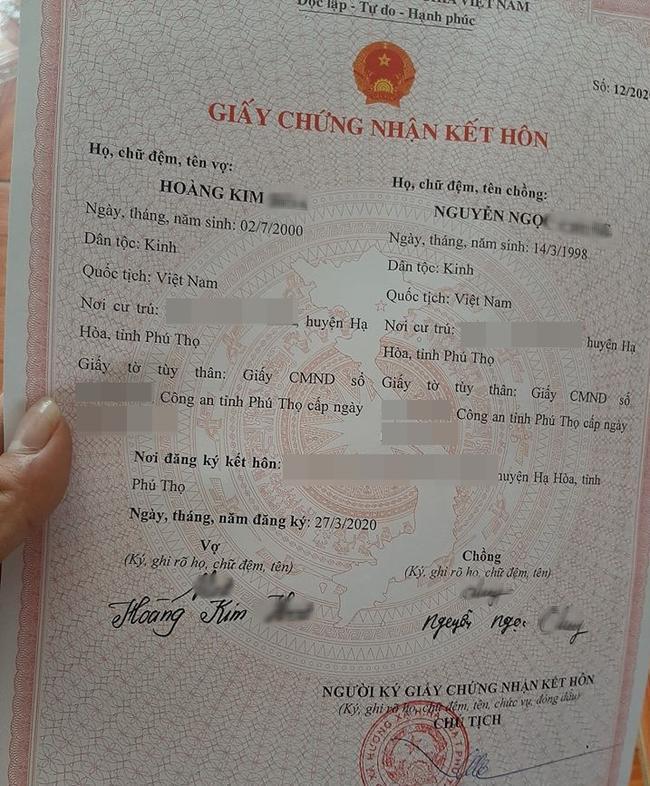 VIỆT NAM
Độc lập - Tự do - Hạnh phúc
Số: 12/202
GIẤY CHỨNG NHẬN KẾT HÔN
Họ, chữ đệm, tên vợ:
HOÀNG KIM
Ngày, tháng, năm sinh: 02/7/2000
Dân tộc: Kinh
Quốc tịch: Việt Nam
Nơi cư trú: , huyện Hạ
Hòa, tỉnh Phú Thọ
Giấy tờ tùy thân: Giấy CMND số
Công an tỉnh Phú Thọ cấp ngày
Họ, chữ đệm, tên chồng:
NGUYỄN NGỌ
Ngày, tháng, năm sinh: 14/3/1998
Dân tộc: Kinh
Quốc tịch: Việt Nam
Nơi cư trú: huyện Hạ
Hòa, tỉnh Phú Thọ
Giấy tờ tùy thân: Giấy CMND số
Công an tỉnh Phú Thọ cấp ngày
Nơi đăng ký kết hôn: huyện Hạ Hòa, tỉnh
Phú Thọ
Ngày, tháng, năm đăng ký: 27/3/2020
Vợ
(Ký, ghi rõ họ, chữ đệm, tên)
Hoàng Kim
Chồng
(Ký, ghi rõ họ, chữ đệm, tên)
Nguyễn Ngọc
NGƯỜI KÝ GIẤY CHỨNG NHẬN KẾT HÔN
(Ký, ghi rõ họ, chữ đệm, tên, chức vụ, đóng dấu)
CHỦ TỊCH